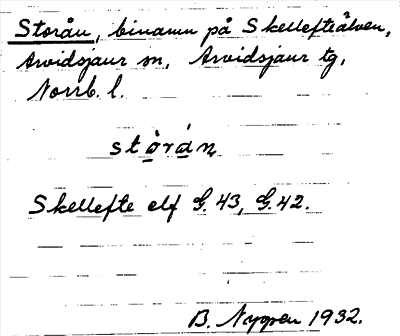 Storån, binamn på Skellefteälven,
Arvidsjaur sn, Arvidsjaur tg,
Norrb. l.
stòrán
Skellefte elf G. 43, G. 42.
B. Nygren 1932.